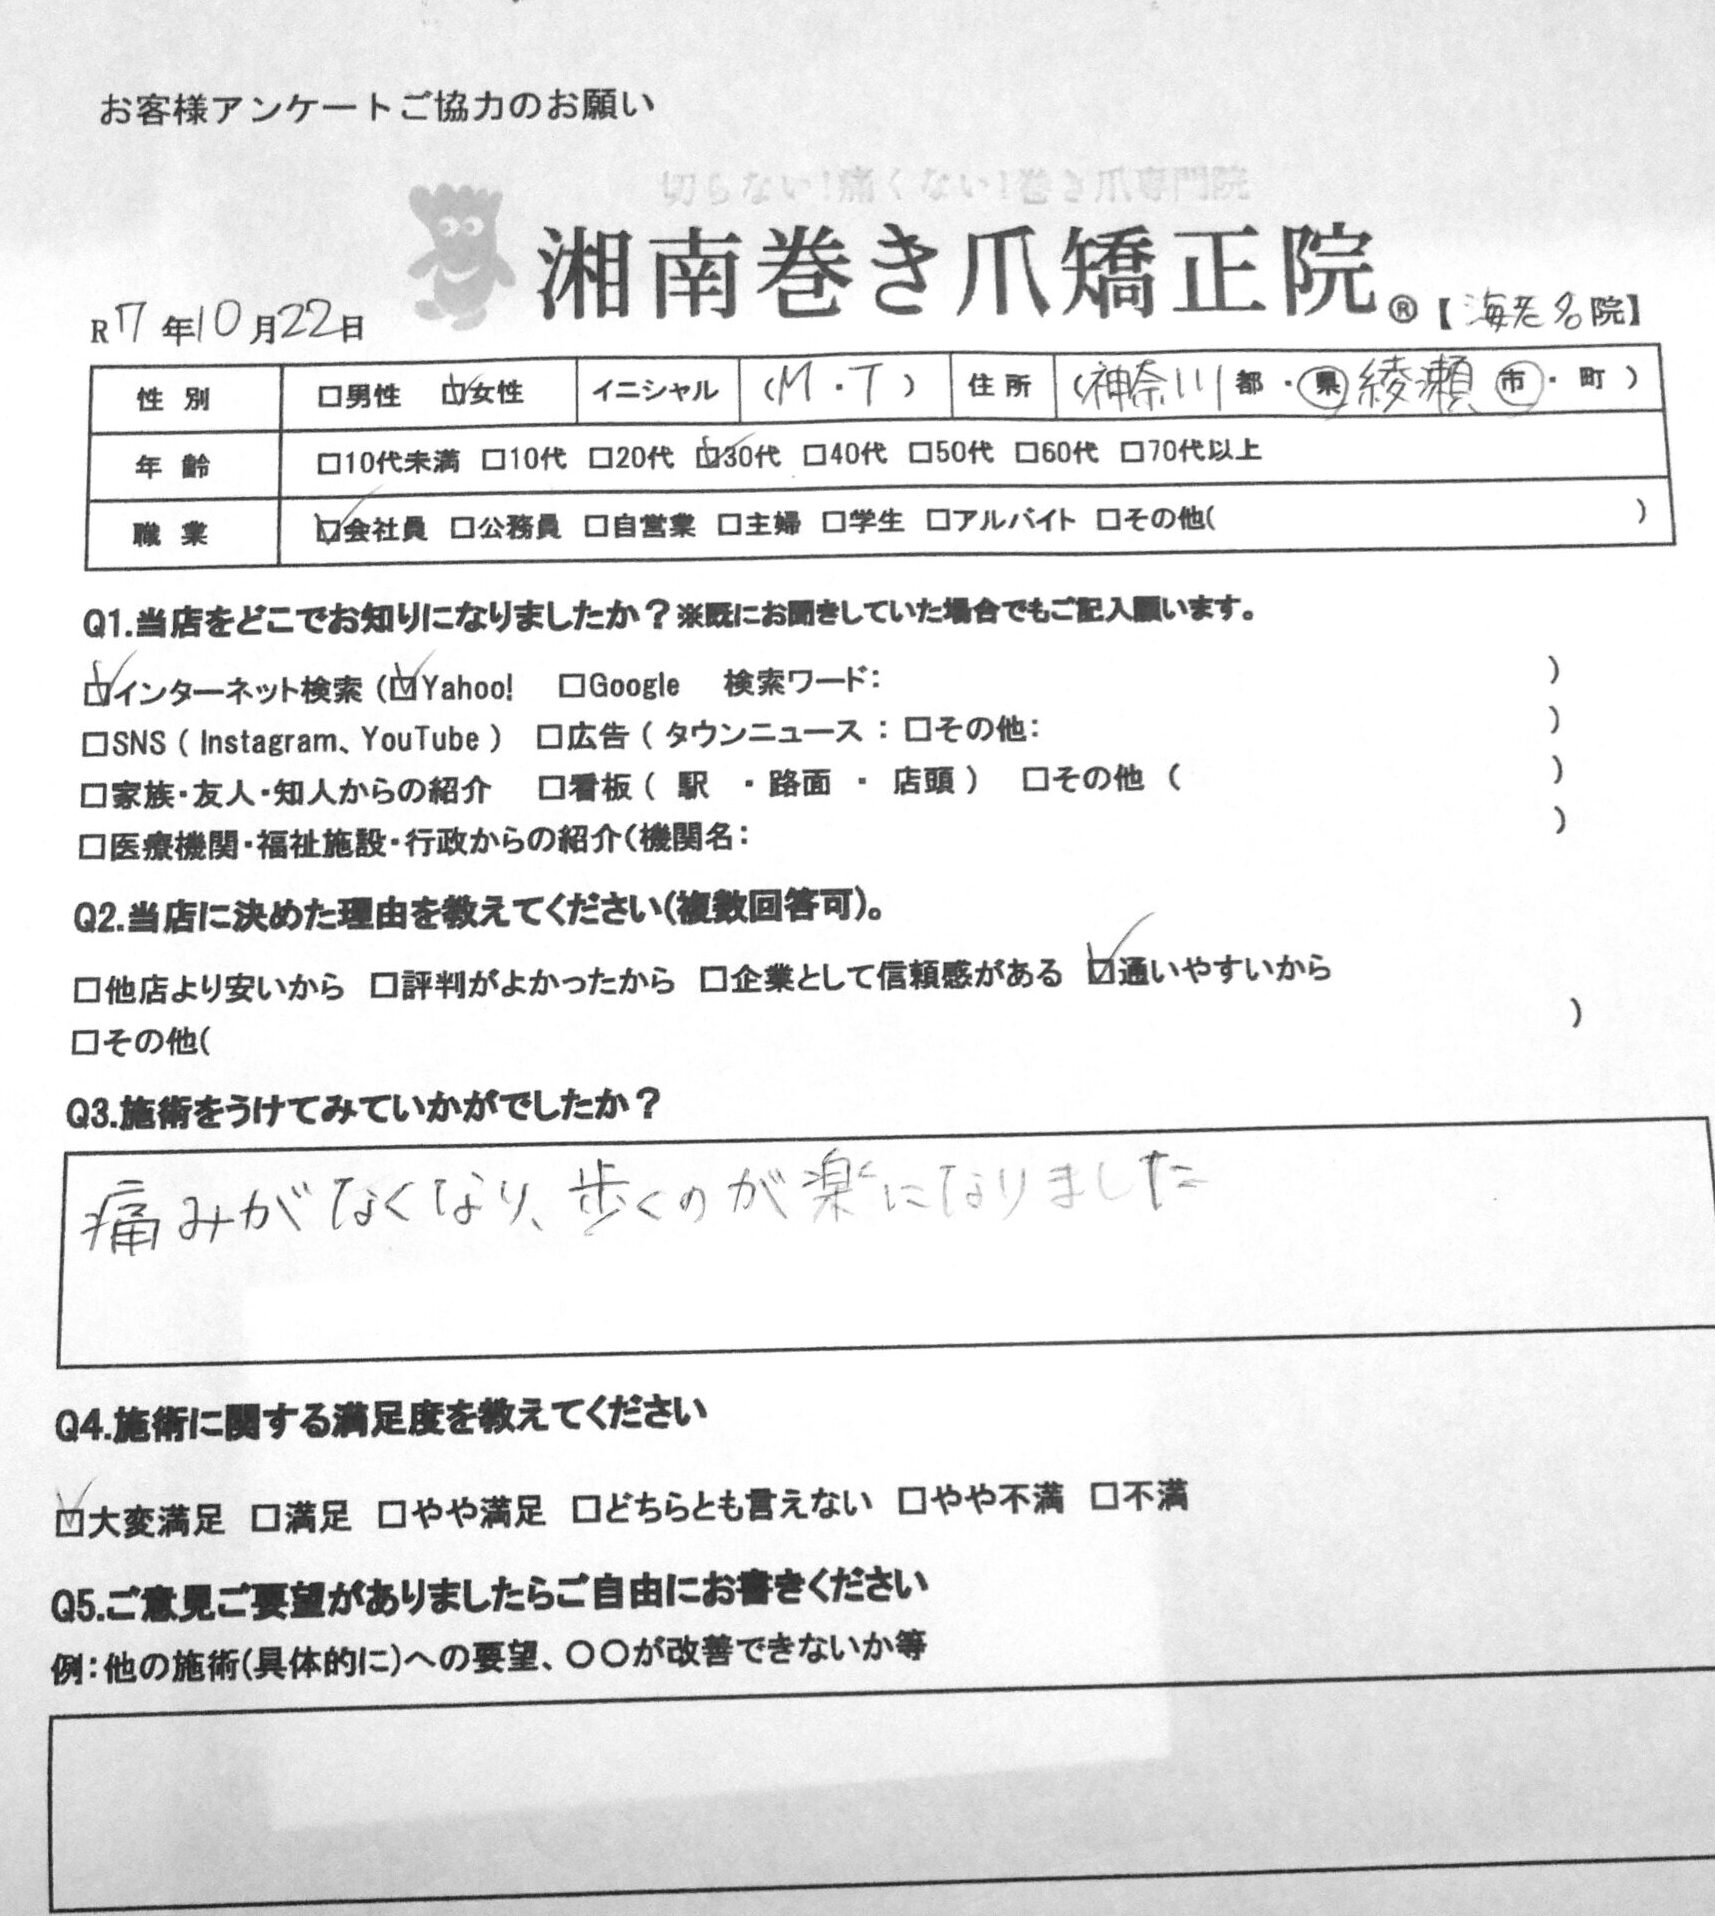 お客様アンケートご協力のお願い
切らない!痛くない!巻き爪専門院
湘南巻き爪矯正院®【海老名院】
R7年10月22日
性別 □男性 ☑女性 イニシャル (M・T) 住所 (神奈川 都・県 綾瀬 市・町 )
年齢 □10代未満 □10代 □20代 ☑30代 □40代 □50代 □60代 □70代以上
職業 ☑会社員 □公務員 □自営業 □主婦 □学生 □アルバイト □その他( )
Q1.当店をどこでお知りになりましたか?※既にお聞きしていた場合でもご記入願います。
☑インターネット検索 (☑Yahoo! □Google 検索ワード: )
□SNS ( Instagram、YouTube ) □広告 ( タウンニュース : □その他: )
□家族・友人・知人からの紹介 □看板 ( 駅 ・ 路面 ・ 店頭 ) □その他 ( )
□医療機関・福祉施設・行政からの紹介(機関名: )
Q2.当店に決めた理由を教えてください(複数回答可)。
□他店より安いから □評判がよかったから □企業として信頼感がある ☑通いやすいから
□その他( )
Q3.施術をうけてみていかがでしたか?
痛みがなくなり、歩くのが楽になりました
Q4.施術に関する満足度を教えてください
☑大変満足 □満足 □やや満足 □どちらとも言えない □やや不満 □不満
Q5.ご意見ご要望がありましたらご自由にお書きください
例:他の施術(具体的に)への要望、〇〇が改善できないか等